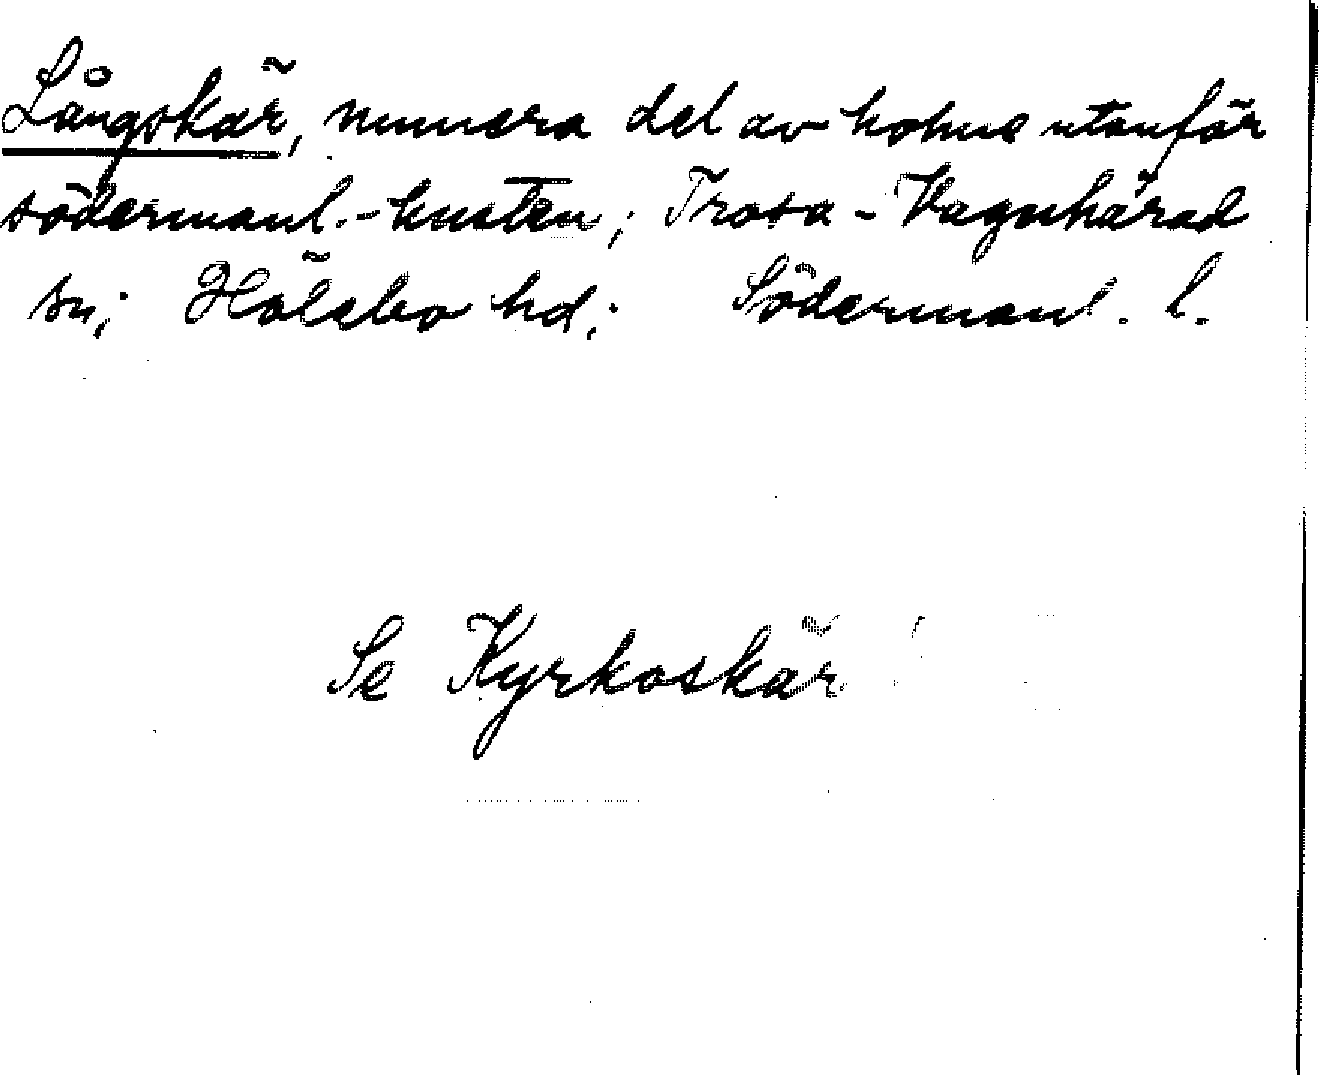 Långskär, numera del av holme utanför
södermanl.-kusten; Trosa-Vagnhärad
sn; Hölebo hd; Södermanl. l.
Se Kyrkoskär